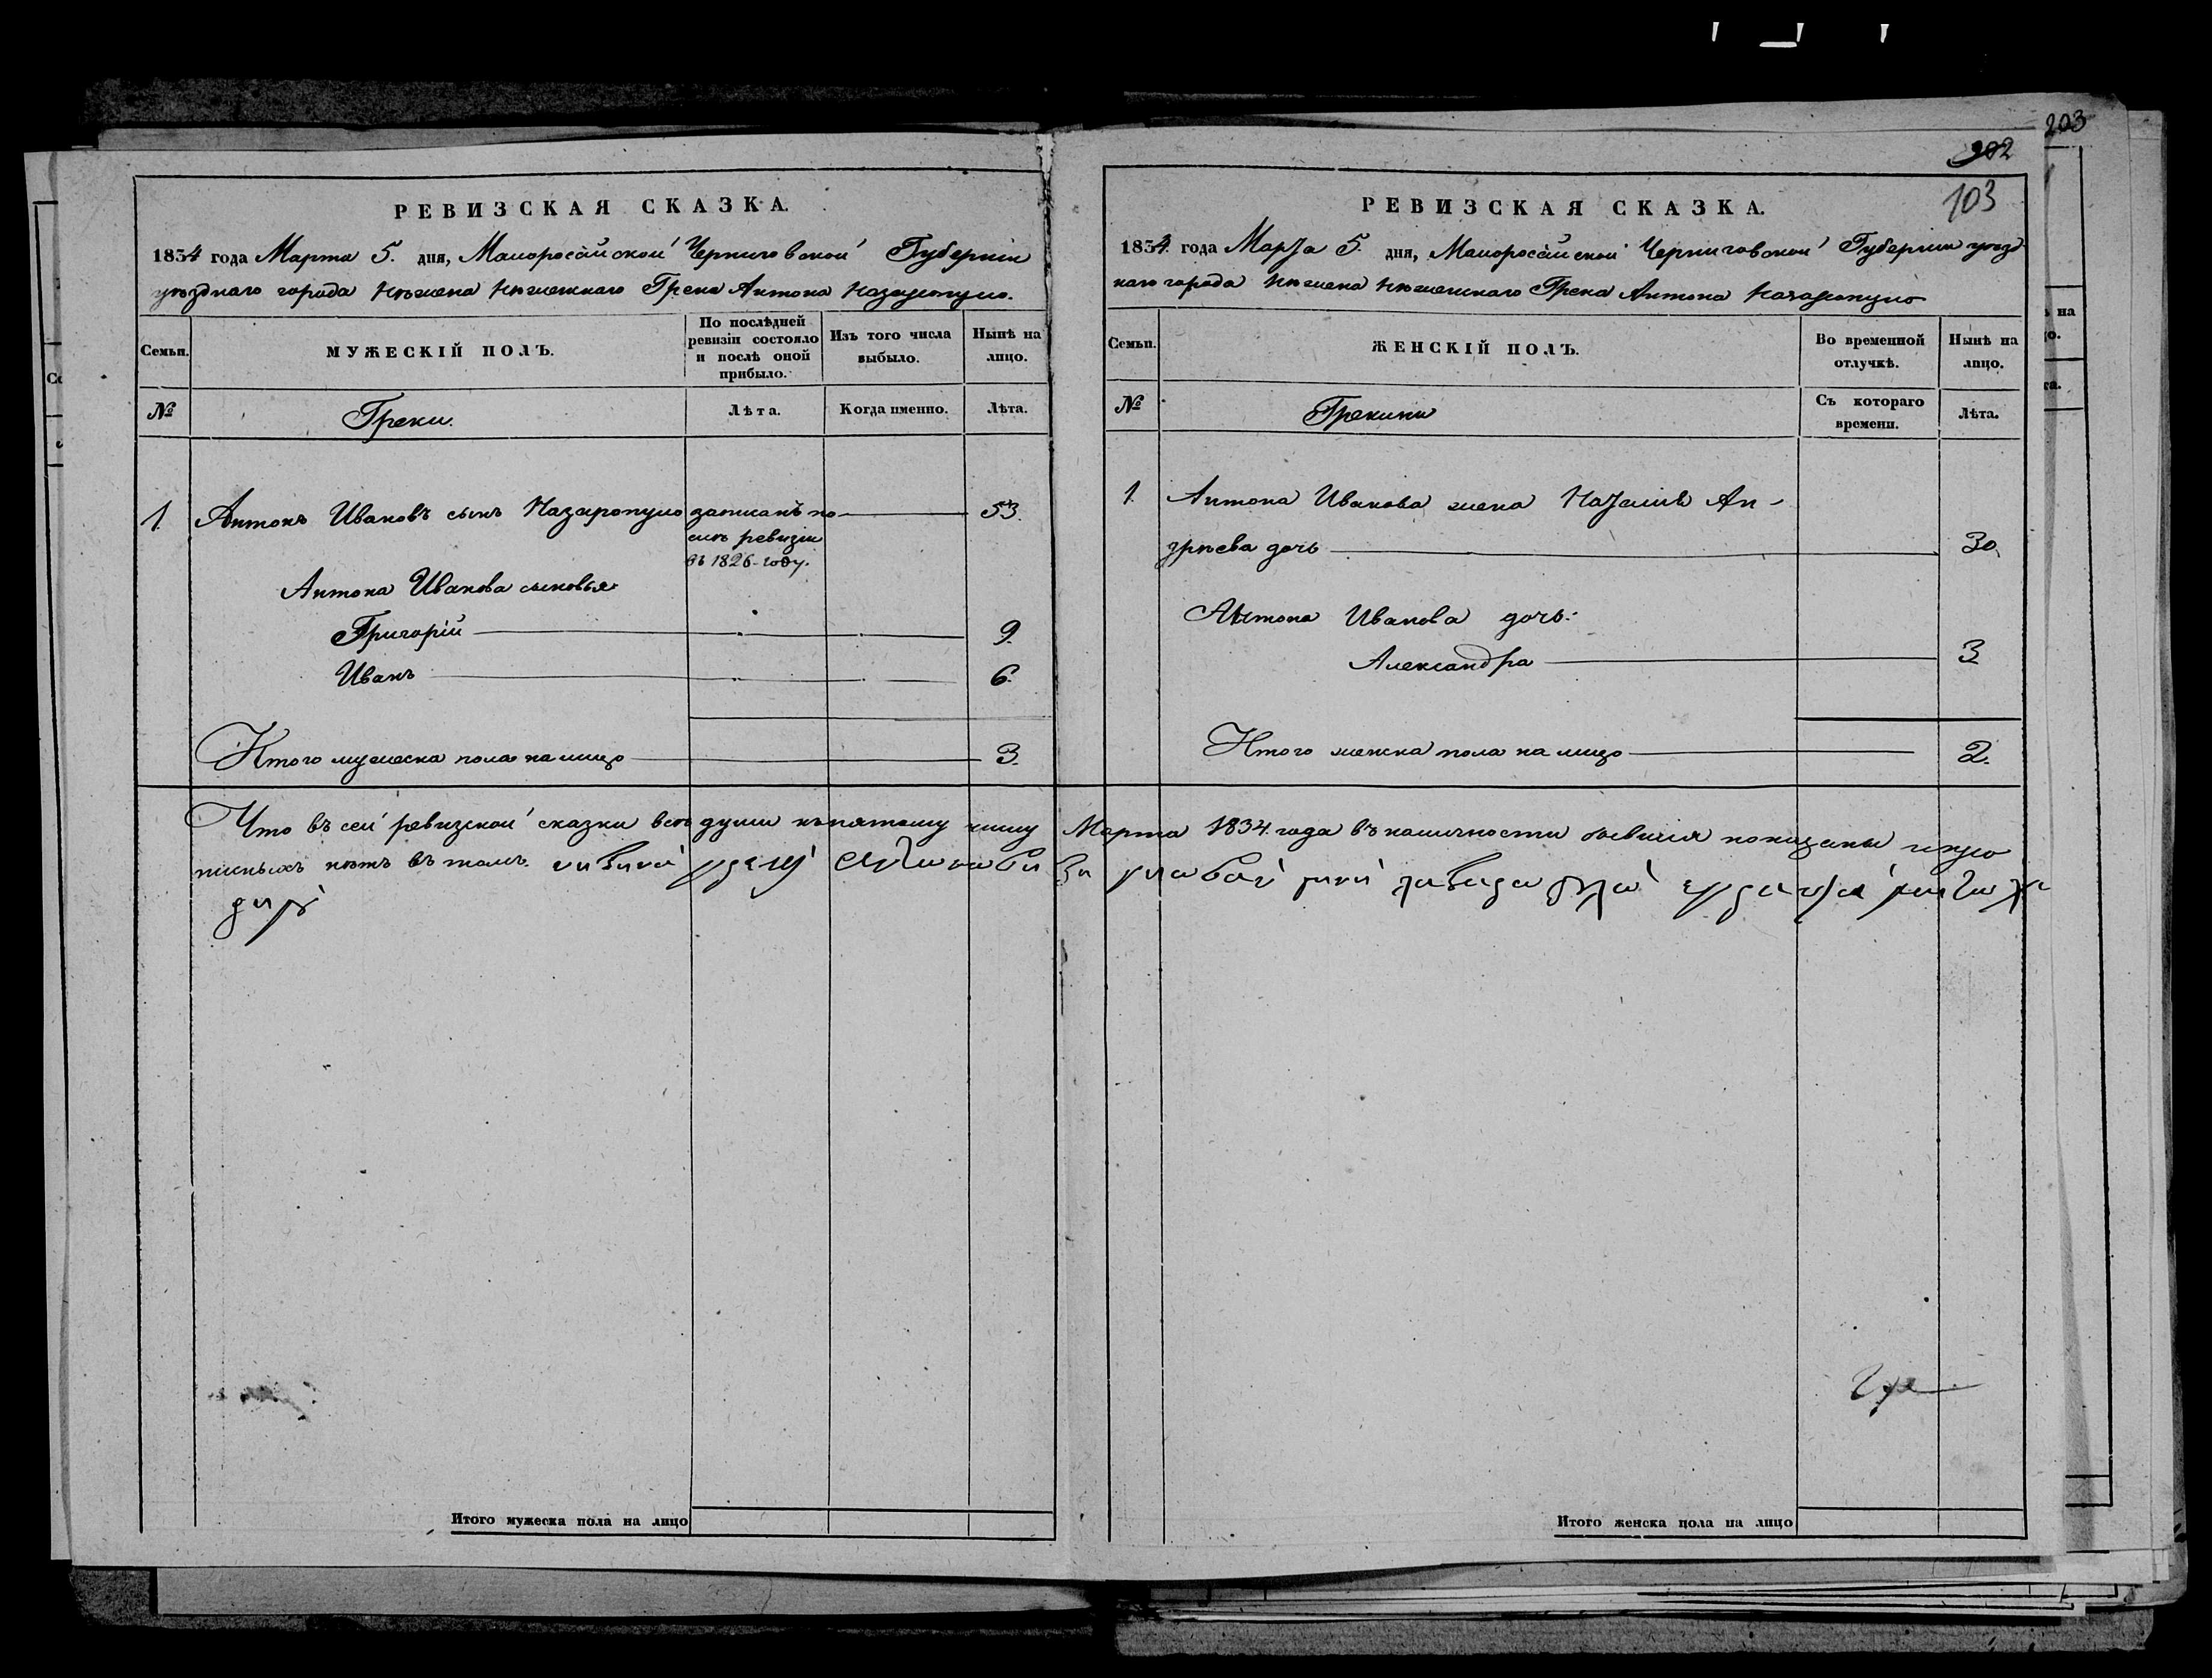 203
202
103
РЕВИЗСКАЯ СКАЗКА.
1834 года Марта 5. дня, Малоросійской Черниговской Губерніи
уѣзднаго города Нѣжина Нѣжинскаго Грека Антона Назаропуло.
Семьи.
МУЖЕСКІЙ ПОЛЪ.
По послѣдней ревизіи состояло и послѣ оной прибыло.
Изъ того числа выбыло.
Нынѣ на лицо.
№
Греки.
Лѣта.
Когда именно.
Лѣта.
1. Антонъ Ивановъ сынъ Назаропуло записанъ по- 53.
слѣ ревизіи
въ 1826 году.
Антона Иванова сыновья
Григорій 9.
Иванъ 6.
Итого мужеска пола на лицо 3.
РЕВИЗСКАЯ СКАЗКА.
1834 года Марта 5. дня, Малоросійской Черниговской Губерніи уѣзд
наго города Нѣжина Нѣжинскаго Грека Антона Назаропуло
Семьи.
ЖЕНСКІЙ ПОЛЪ.
Во временной отлучкѣ.
Нынѣ на лицо.
№
Грекини
Съ котораго времени.
Лѣта.
1. Антона Иванова жена Наталія Ан-
дрѣева дочь 30.
Антона Иванова дочь:
Александра 3
Итого женска пола на лицо 2.
Что въ сей ревизской сказки всѣ души къ пятому числу Марта 1834 года въ наличности бывшія показаны и про
писныхъ нѣтъ въ томъ.
Итого мужеска пола на лицо
Итого женска пола на лицо